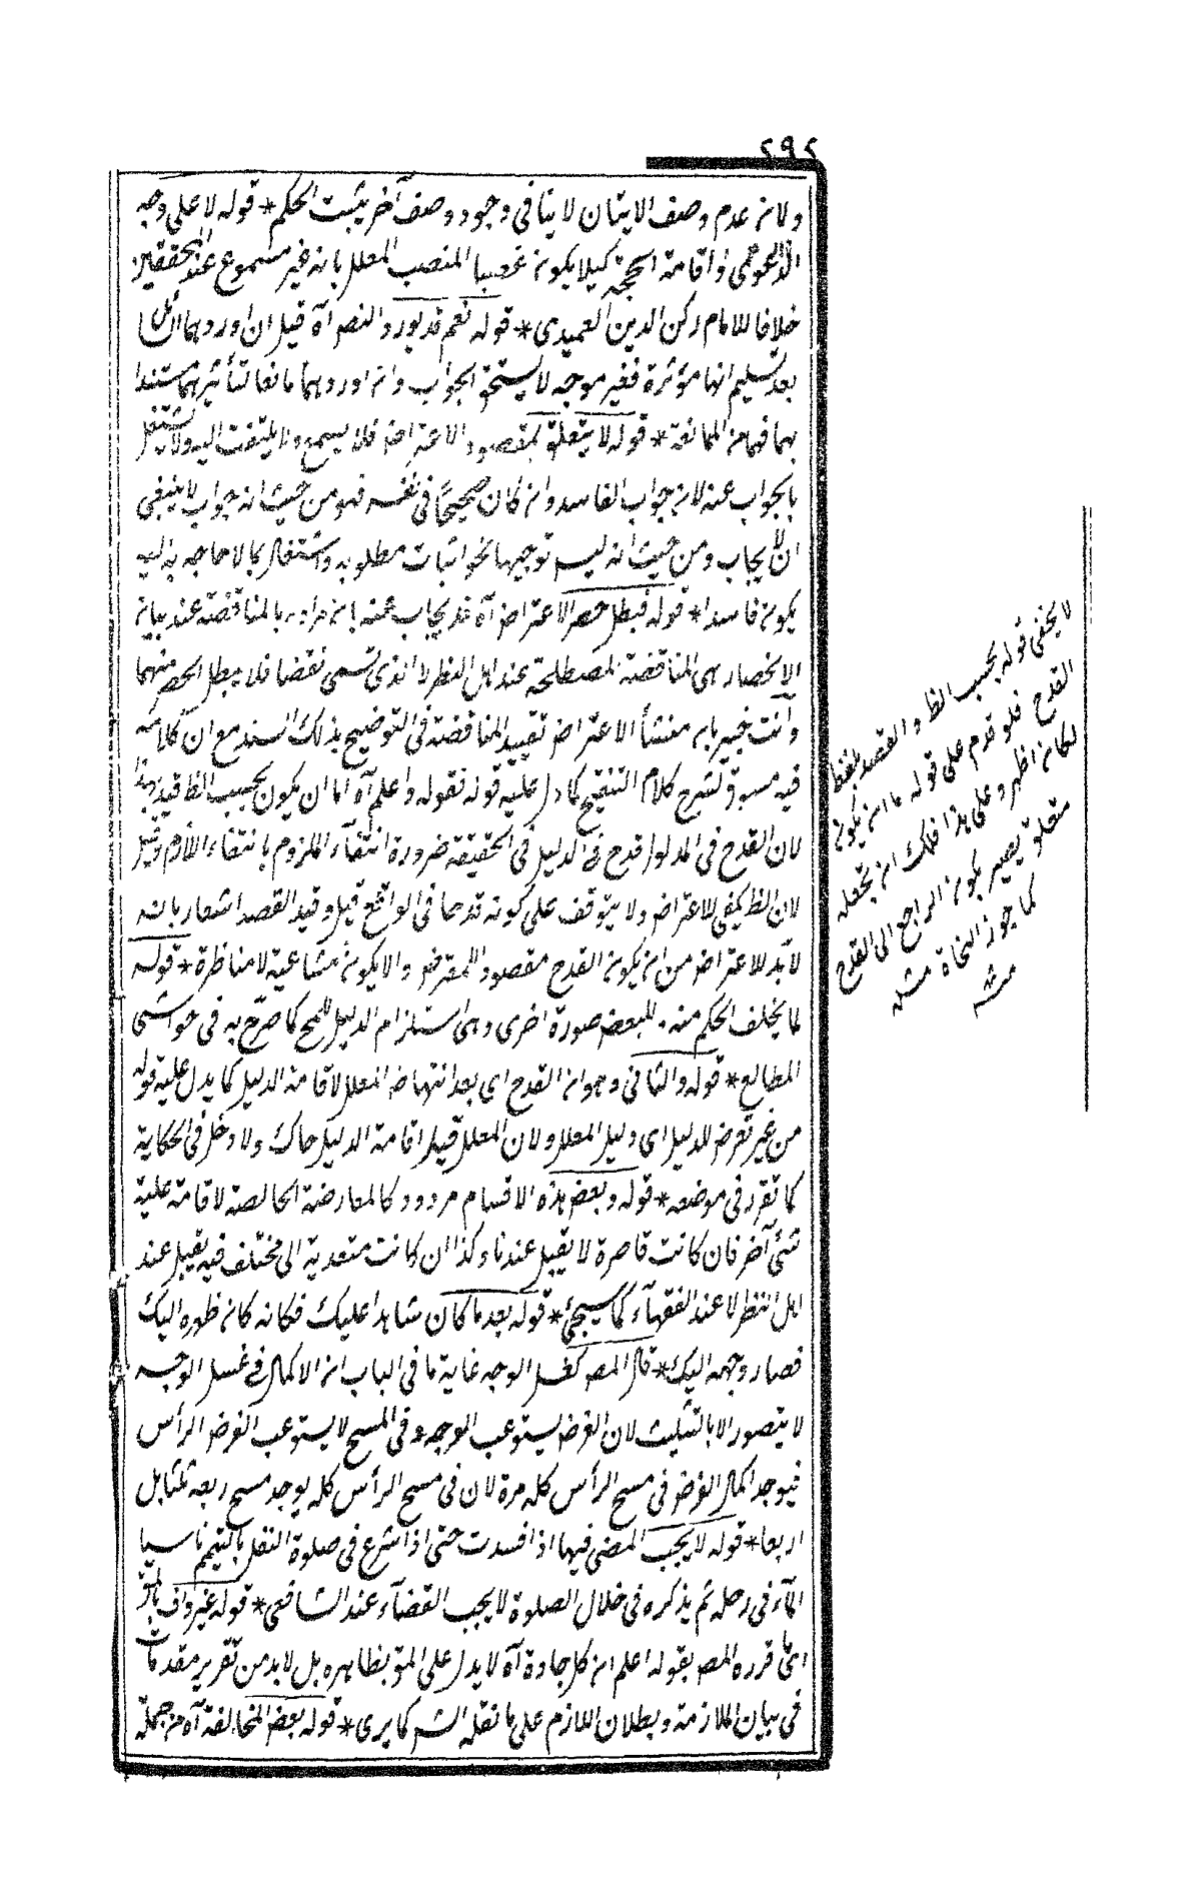 ٢٩٢
ولان عدم وصف الايتان لا ينافى وجود وصف آخر يثبت الحكم * قوله لا على وجه
الدعوى واقامة الحجة كيلا يكون غصبا لمنصب المعلل بانه غير مسموع عند المحققين
خلافا للامام ركن الدين العميدى * قوله نعم قد يورد النص آه قيل ان اوردهما السائل
بعد تسليم انها مؤثرة فغير موجه لا يستحق الجواب وان اوردهما مانعا لتأثيرهما مستندا
بهما فهما من الممانعة * قوله لا يتعلق بمقصود الاعتراض فلا يسمع ولا يلتفت اليه ولا يشتغل
بالجواب عنه لان جواب الفاسد وان كان صحيحًا فى نفسه فهو من حيث انه جواب لا ينبغى
ان لا يجاب ومن حيث انه ليس توجيها نحو اثبات مطلوبه واشتغال بما لا حاجة به اليه
يكون فاسدا * قوله فبطل حصر الاعتراض آه قد يجاب عنه بان مراده بالمناقضة عند بيان
الانحصار هى المناقضة المصطلحة عند اهل النظر لا الذى تسمى نقضا فلا يبطل الحصر منهما
وانت خبير بان منشأ الاعتراض تقييد المناقضة فى التوضيح بذلك السند مع ان كلامه
فيه مسوق لشرح كلام التنقيح كما دل عليه قوله فنقوله واعلم آه اما ان يكون بحسب الظ قيد بهذا
لان القدح فى المدلول قدح فى الدليل فى الحقيقة ضرورة انتفاء الملزوم بانتفاء اللازم وقيل
لان الظ يكفى للاعتراض ولا يتوقف على كونه قدحا فى الواقع قيل وقيد القصد اشعار بانه
لا بد للاعتراض من ان يكون القدح مقصود المعترض والا يكون مشاغبة لا مناظرة * قوله
لما يخلف الحكم منه للبعض صورة اخرى وهى استلزام الدليل للمح كما صرح به فى حواشى
المطالع * قوله والثانى وهو ان القدح اى بعد انتهاض المعلل لاقامة الدليل كما يدل عليه قوله
من غير تعرض للدليل اى دليل المعلل ولان المعلل قبل اقامة الدليل حاك ولا دخل فى الحكاية
كما تقرر فى موضعه * قوله وبعض هذه الاقسام مردود كالمعارضة الخالصة لاقامة علية
شئ آخر فان كانت قاصرة لا يقبل عندنا وكذا ان كانت متعدية الى مختلف فيه يقبل عند
اهل النظر لا عند الفقهاء كما سيجئ * قوله بعد ما كان شاهدا عليك فكانه كان ظهره اليك
فصار وجهه اليك * قال المص كغسل الوجه غاية ما فى الباب ان الاكمال فى غسل الوجه
لا يتصور الا بالتثليث لان الفرض يستوعب الوجه وفى المسح لا يستوعب الفرض الرأس
فيوجد اكمال الفرض فى مسح الرأس كله مرة لان فى مسح الرأس كله يوجد مسح ربعه ثلثا بل
اربعا * قوله لا يجب المضى فيها اذا فسدت حتى اذا شرع فى صلوة النفل بالتيمم ناسيا
الماء فى رحله ثم يذكره فى خلال الصلوة لا يجب القضاء عند الشافعى * قوله غير واف بالمق
اى ما قرره المص بقوله اعلم ان كل جادة آه لا يدل على المق بظاهره بل لا بد من تقرير مقدمات
فى بيان الملازمة وبطلان اللازم على ما نقله الش كما يرى * قوله بعض المخالفة آه من جملة
لا يخفى قوله بحسب الظ والقصد للفظ
القدح فلو قدم على قوله ما ان يكون
لكان اظهر وعلى هذا فلك ان تجعله
متعلق بضمير يكون الراجع الى القدح
كما جوز النحاة مثل
منه